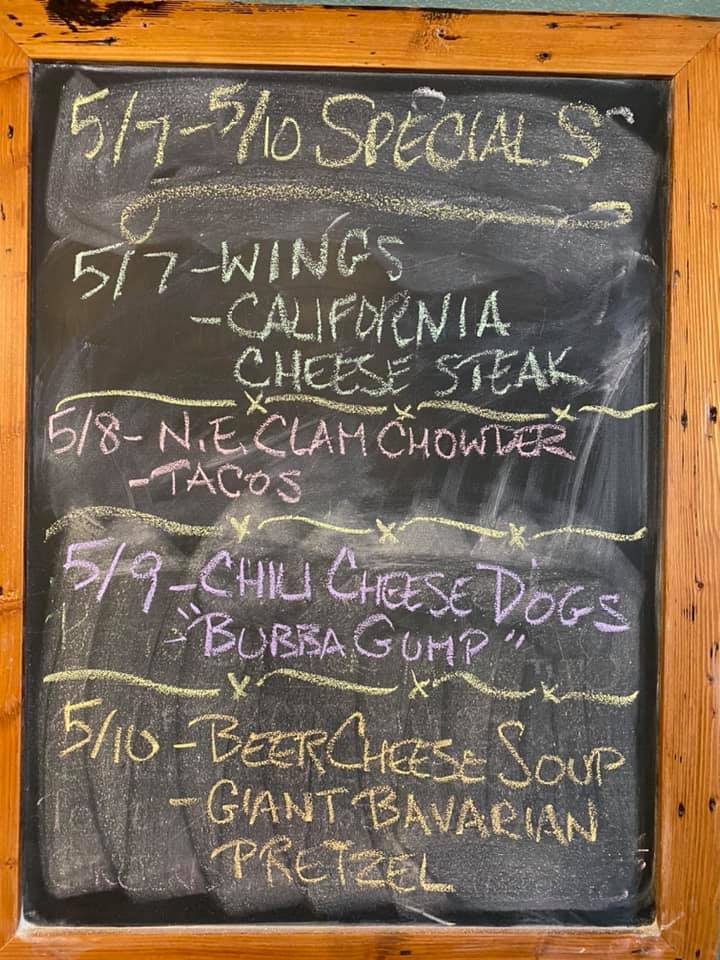 5/7-5/10 SPECIALS
5/7-WINGS
-CALIFORNIA
CHEESE STEAK
5/8- N.E. CLAM CHOWDER
-TACOS
5/9-CHILI CHEESE DOGS
-"BUBBA GUMP"
5/10 -BEER CHEESE SOUP
-GIANT BAVARIAN
PRETZEL